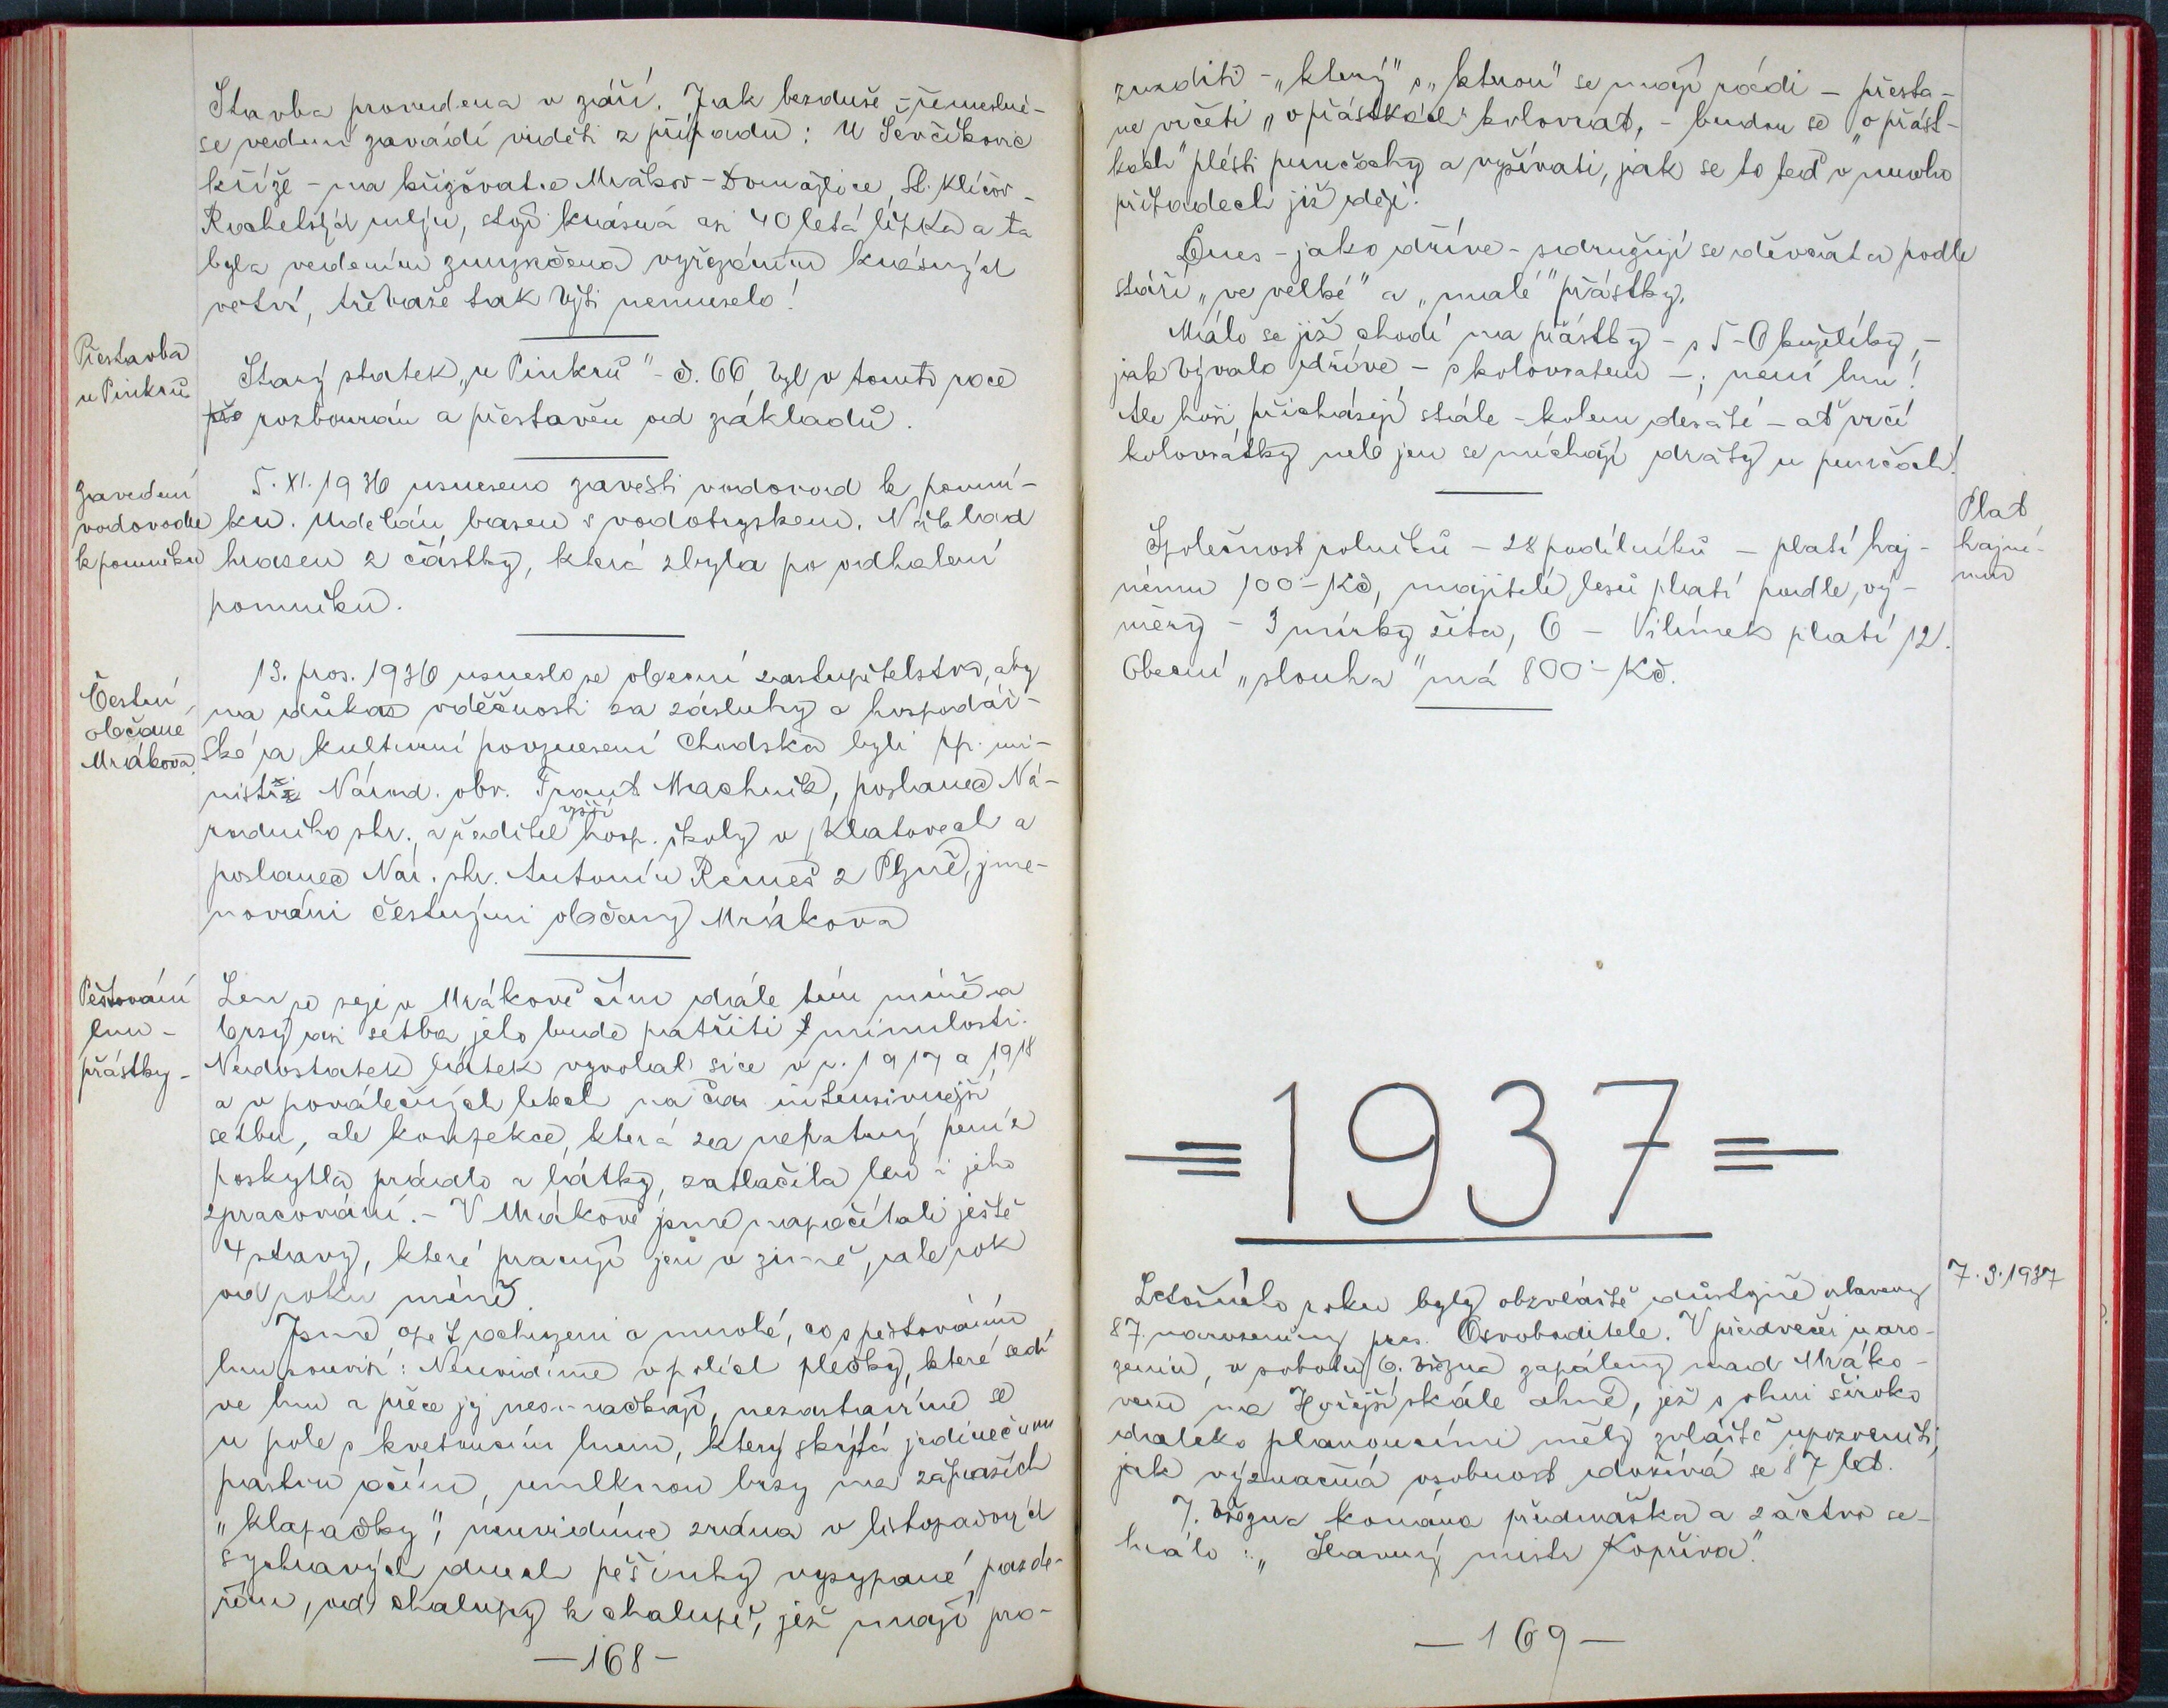 Stavba provedena v září. Jak bezduše - řemeslně -
se vedení zavádí viděti z případu: U Ševčíkovic
kříže - na křižovatce Mrákov - Domažlice, St. Klíčov -
mlýn, stojí krásná asi 40 letá lípka a ta
byla vedením zmrzačena vyřezáním krásných
větví, třebaže tak býti nemuselo!
Přestavba
u Pinkrů
Starý statek „u Pinkrů" - č. 66 byl v tomto roce
pře rozbourán a přestavěn od základů.
Zavedení
vodovodu
k pomníku
5. XI. 1936 usneseno zavésti vodovod k pomní-
ku. Udělán basen s vodotryskem. Náklad
hrazen z částky, která zbyla po odhalení
pomníku.
Čestní
občané
Mrákova.
13. pros. 1936 usneslo se obecní zastupitelstvo, aby
na důkaz vděčnosti za zásluhy o hospodář-
ské a kulturní povznesení Chodska byli pp. mi-
nistr Národ. obr. Frant Machník, poslanec Ná-
rodního shr. a ředitel vyšší hosp. školy v Klatovech a
poslanec Nár. shr. Antonín Remeš z Plzně, jme-
nováni čestnými občany Mrákova
Pěstování
lnu -
přástky -
Len se seje v Mrákově čím dále tím méně a
brzy asi setba jeho bude patřiti minulosti.
Nedostatek látek vyvolal sice v r. 1917 a 1918
a v poválečných letech na čas intensivnější
setbu, ale konfekce, která za nepatrný peníz
poskytla prádlo a látky, zatlačila len i jeho
zpracování. - V Mrákově jsme napočítali ještě
4 stavy, které pracují jen v zimě, ale rok
od roku méně.
Jsme opět ochuzeni o mnohé, co s pěstováním
lnu souvisí: Neuvidíme v polích plečky, které sedí
ve lnu a přece jej nepomačkají, nezastavíme se
u pole s kvetoucím lnem, který skýtá jedinečnou
pastvu očím, umlknou brzy na zápražích
„klapačky", neuvidíme zrána v listopadových
sychravých dnech pěšinky vysypané pazde-
řím, od chalupy k chalupě, jež mají pro-
- 168 -
zraditi - „který" s „kterou" se mají rádi - přesta-
ne vrčeti „o přástkách" kolovrat, - budou se „o přást-
kách" plésti punčochy a vyšívati, jak se to teď v mnoha
případech již děje.
Dnes - jako dříve - sdružují se děvčata podle
stáří „ve velké" a „malé" přástky.
Málo se již chodí na přástky - s 5-6 kuželíky, -
jak bývalo dříve - s kolovratem -; není lnu!
Ale hoši přicházejí stále - kolem desáté - ať vrčí
kolovrátky nebo jen se míchají dráty u punčoch!
Plat
hajné-
mu
Společnost rolníků - 28 podílníků - platí haj-
nému 100 - Kč, majitelé lesů platí podle vý-
měry - 3 mírky žita, 6 - Vilímek platí 12.
Obecní „slouha" má 800 - Kč.
1937
7. 3. 1937
Letošního roku byly obzvláště důstojně oslaveny
87. narozeniny pres. Osvoboditele. V předvečer naro-
zenin, v sobotu 6. března zapáleny nad Mráko-
vem na Hořejší skále ohně, jež s ohni široko
daleko planoucími měly zvláště upozorniti,
jak význačná osobnost dožívá se 87 let.
7. března konána přednáška a žactvo se-
hrálo: „Slavný mistr Kopřiva".
- 169 -